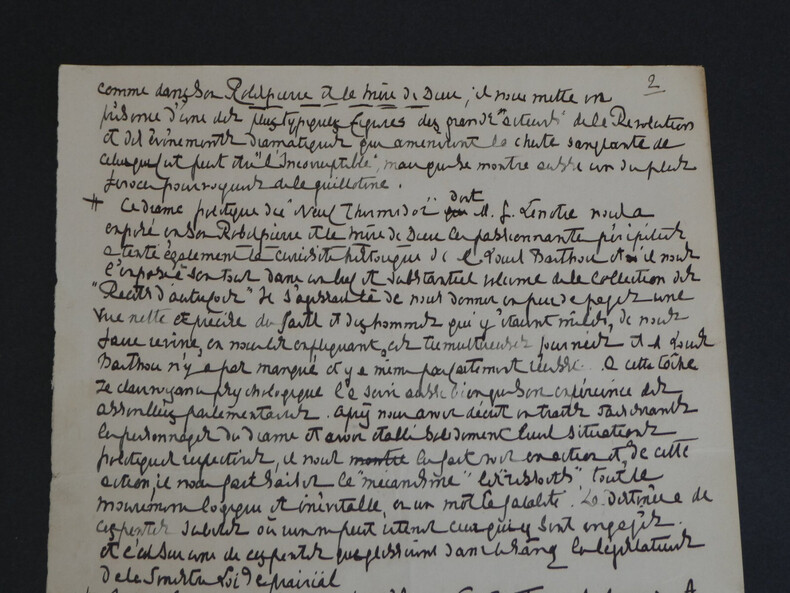 2
comme dans son Robespierre et le Mère de Dieu, il nous mette en
présence d'une des plus typiques figures des grands "acteurs" de la Révolution
et des événements dramatiques qui amenèrent la chute sanglante de
celui qui fut peut être "l'Incorruptible", mais qui se montre aussi un des plus
féroces pourvoyeurs de la guillotine.
Ce drame politique du "Neuf Thermidor" dont M. G. Lenotre nous a
exposé en son Robespierre et le Mère de Dieu les passionnantes péripéties
a tenté également la curiosité historique de M Louis Barthou et il nous
l'expose à son tour dans un bref et substantiel volume de la collection des
"Récits d'autrefois". Il s'agissait de nous donner en peu de pages une
vue nette et précise des faits et des hommes qui y étaient mêlés, de nous
faire revivre, en nous les expliquant, ces tumultueuses journées et M Louis
Barthou n'y a pas manqué et y a même parfaitement réussi. A cette tâche
sa clairvoyance psychologique l'a servi aussi bien que son expérience des
assemblées parlementaires. Après nous avoir décrit en traits saisissants
les personnages du drame et avoir établi solidement leurs situations
politiques respectives, il nous montre les fait voir en action et de cette
action, il nous fait saisir le "mécanisme" les "ressorts" tout le
mouvement logique et inévitable, en un mot la fatalité. La destinée a de
ces pentes subites où rien ne peut retenir ceux qui y sont engagés.
et c'est sur une de ces pentes que glissèrent dans le sang les législateurs
de la sinistre Loi de prairial